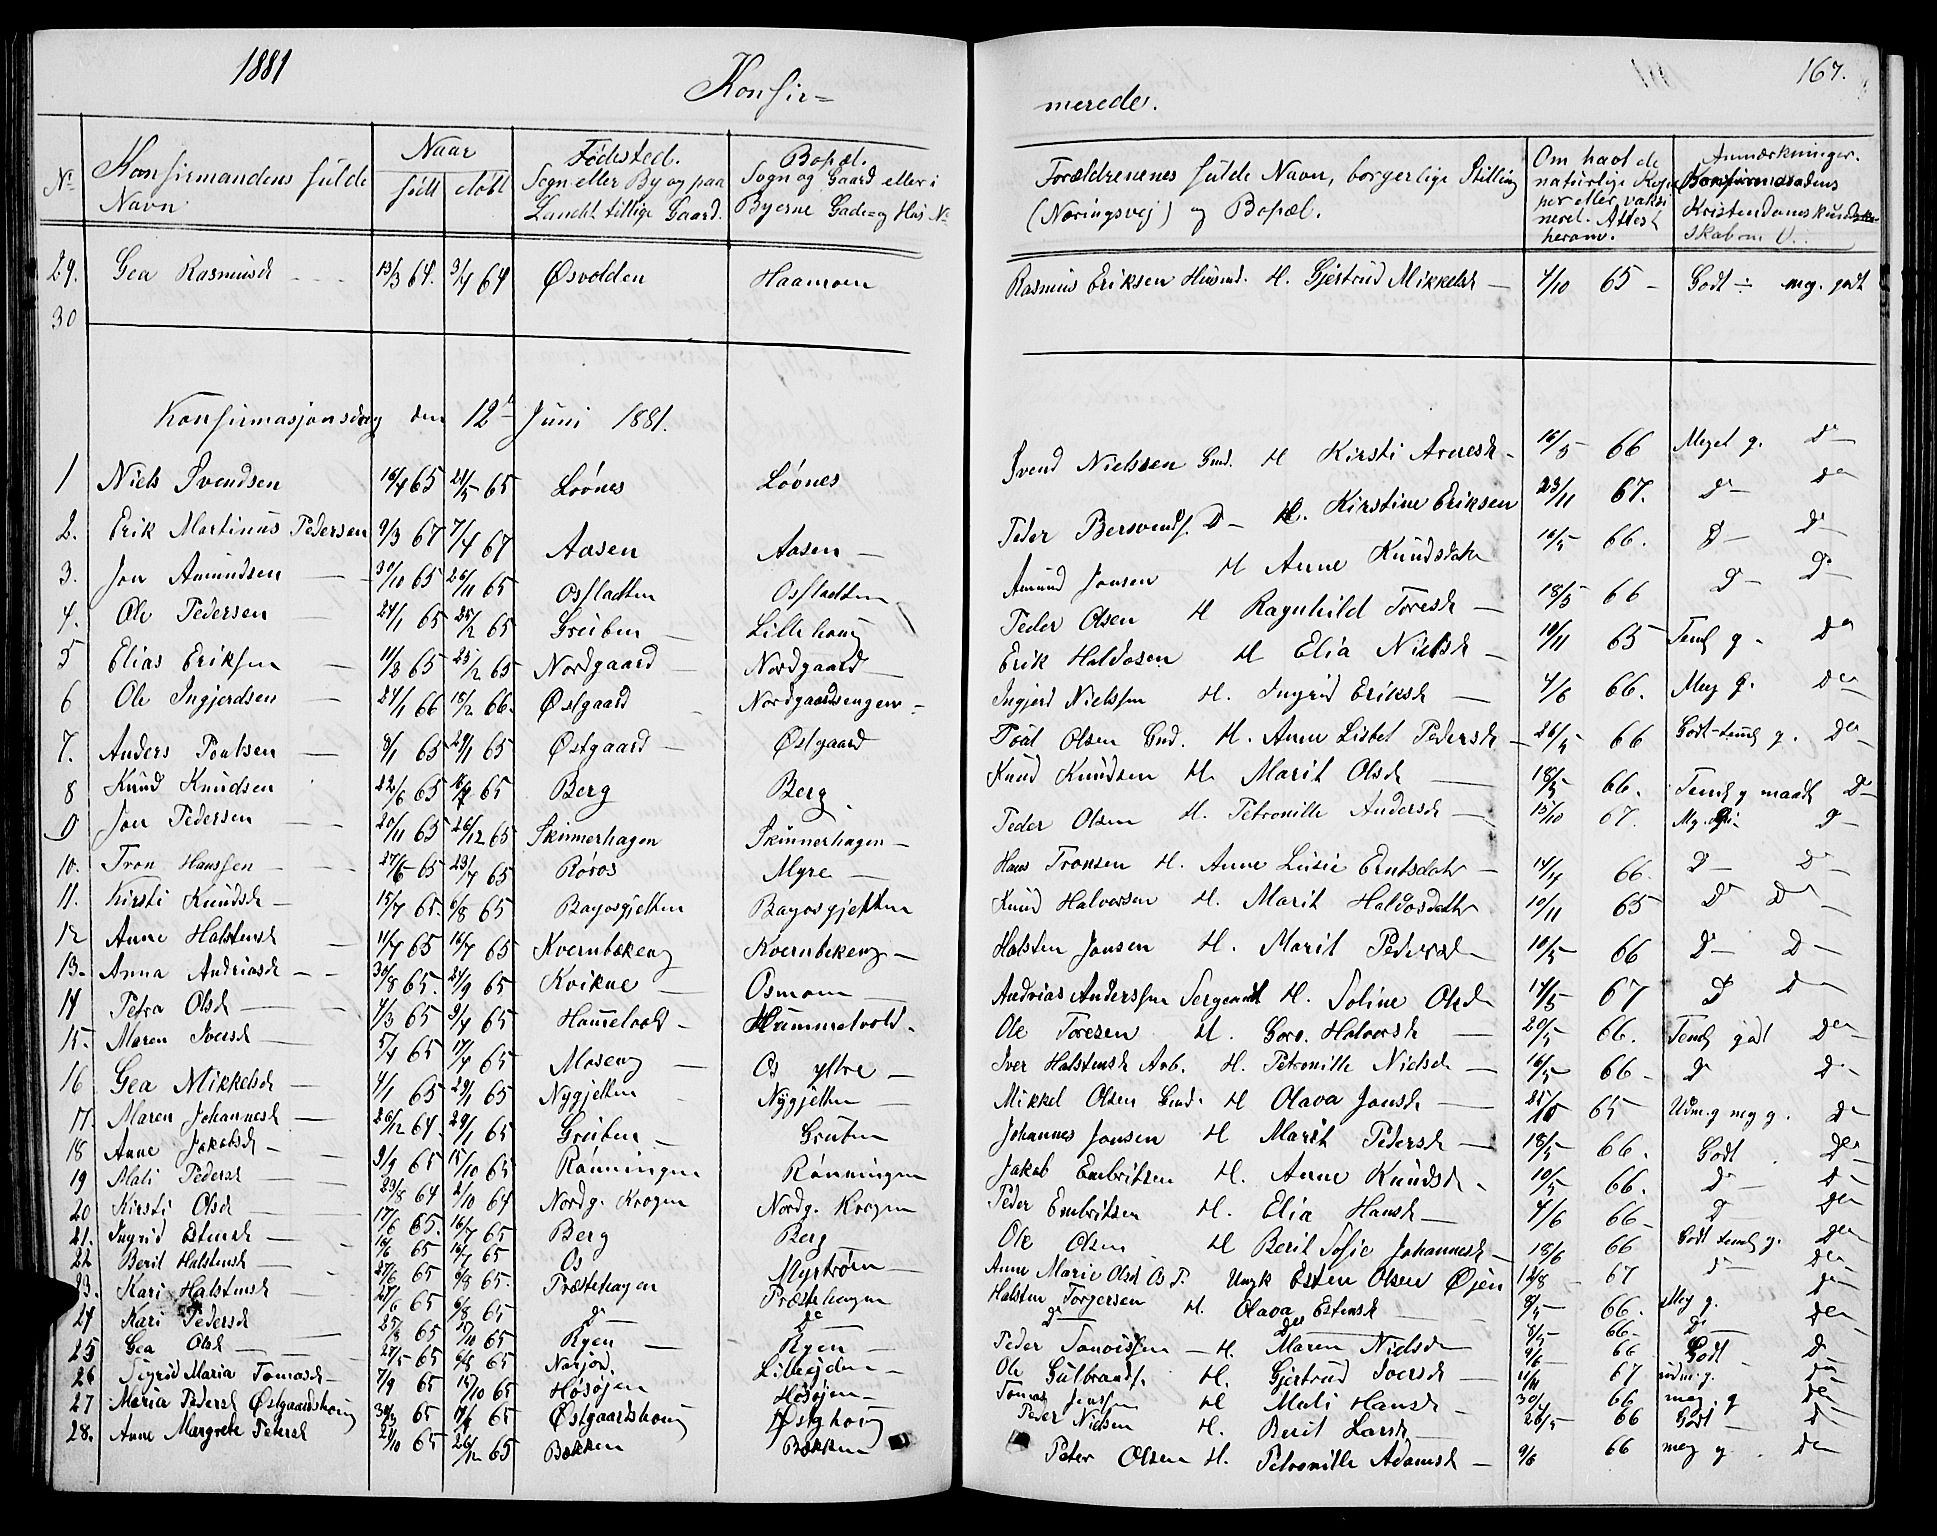 1881
Konfir=
merede.
167.
No
Konfirmandens fulde
Navn
Naar
født
döbt
Födested.
Sogn eller By og paa
Landet tillige Gaard.
Bopæl.
Sogn og Gaard eller i
Byerne Gade og Hus No
Forældrenenes fulde Navn, borgerlige Stilling
(Næringsvej) og Bopæl.
Om havt de
naturlige Kop
per eller vaksi
neret. Attest
herom.
Anmærkninger.
Konfirmandens
Kristendomskund
skab m. V.
29. Gea Rasmusd 13/3 64. 3/4 64 Øsvolden Haamoen Rasmus Eriksen Husmd. H. Gjertrud Mikkelsd 4/10 65 Godt ÷ meg. godt
30
Konfirmasjonsdag den 12te Juni 1881.
1 Niels Svendsen 16/4 65 21/5 65 Løönes Løönes Svend Nielssen Gmd. H Kirsti Arnesd 16/5 66 Meget g. Do
2. Erik Martinus Pedersen 9/3 67 7/4 67 Aasen Aasen Peder Bersvends. Do H. Kirstine Eriksen 23/11 67. Do Do
3. Jon Amundsen 30/10 65 26/11 65 Osfladten Osfladten Amund Jonsen H Anne Knudsdatr 16/5 66. Do Do
4. Ole Pedersen 24/1 65 25/2 65 Greiben Lillehoug Peder Olsen H Ragnhild Toresd 18/5 66 Do Do
5 Elias Eriksen 11/2 65 25/2 65 Nordgaard Nordgaard Erik Haldosen H Elia Nielsd 10/11 65 Teml g. Do
6 Ole Ingjerdsen 24/1 66 18/2 66. Østgaard Nordgaardsengen Ingjerd Nielssen H. Ingrid Eriksd 4/6 66. Meg g. Do
7. Anders Poulsen 8/1 65 29/1 65 Østgaard Østgaard Poul Olsen Gmd. H. Anne Lisbet Pedersd 26/5 66 Godt-teml g. Do
8 Knud Knudsen 22/6 65 16/7 65 Berg Berg Knud Knudsen H. Marit Olsd 18/5 66. Teml g maadl Do
9 Jon Pedersen 20/11 65 26/12 65 Skinnerhagen Skinnerhagen Peder Olsen H. Petronille Andersd 15/10 67. Mg. Do
10. Tron Hanssen 27/6 65 23/7 65 Röros Myre Hans Tronsen H. Anne Lusie Erntsdatr 14/4 66. Do Do
11. Kirsti Knudsd 15/7 65. 6/8 65 Bagosgjetten Bagosgjetten Knud Halvorsen H. Marit Haldosdatr 10/11 65 Do Do
12 Anne Halstensd 11/4 65 16/7 65 Kvernbækeng Kvernbekeng Halsten Jonsen H. Marit Pedersd 10/5 66 Do Do
13. Anna Andriasd 30/8 65. 24/9 65 Kvikne Osmoen Andrias Anderssen Sergeant H. Soline Olsd 14/5 67 Do Do
14 Petra Olsd 4/3 65 9/4 65 Hummelvold Hummelvold. Ole Toresen H. Goro. Halvorsd 20/5 66. Teml godt Do
15. Maren Iversd 5/4 65 17/4 65 Moseng Os yttre Iver Halstensd Arb. H. Petronille Nielsd 16/5 66 Do Do
16 Gea Mikkelsd 4/1 65 29/1 65 Nygjetten Nygjetten Mikkel Olsen Gmd. H Olava Jonsd 25/10 65 Udm. g meg g. Do
17. Maren Johannesd 26/12 64. 29/1 65 Greiben Greiben Johannes Jonsen H Marit Pedersd 18/5 66. Godt Do
18 Anne Jakobsd 9/9 65 15/10 65 Rönningen Rönningen Jakob Embritsen H. Anne Knudsd 10/5 66. Do Do
19 Mali Pedersd 23/8 64 2/10 64 Nordg. Krogen Nordg. Krogen Peder Embritsen H. Elia Hansd 4/6 66 Do Do
20 Kirsti Olsd 17/6 65. 16/7 65 Berg Berg Ole Olsen H Berit Sofie Johannesd 18/6 66 Godt teml g. Do
21. Ingrid Estensd 16/6 65 16/7 65 Os Myrtröen Anne Marie Olsd Os P. Ungk Esten Olsen Øjen 12/8 67 Do Do
22 Berit Halstensd 27/6 65 6/8 65. Præstehagen Præstehagen Halsten Torgersen H. Olava Estensd 8/5 66. Meg g. Do
23. Kari Halstensd 27/6 65 6/8 65 Do Do Do Do 8/5 66 Do Do
24 Kari Pedersd 65 65 Ryen Ryen Peder H. Maren Nielsd 9/6 66 Godt Do
25 Gea Olsd 27/5 65 65 Narjord. Ole Gulbrands. H. Gjertrud Iversd 11/11 67 udm. g. Do
26 Sigrid Maria Tomasd 7/9 65 15/10 65 Høsøjen Høsøjen Tomas Jenssen H Mali Hansd 30/4 66 meg g Do
27 Maria Pedersd Østgaardshoug 65 65 Østgaardshoug Østghoug Peder Nielsen H. Berit Larsd 26/5 66 Godt Do
28. Anne Margrete Petersd 21/10 65 26/12 65 Bækken Bækken Peter Olsen H. Petronille Adamsd 9/6 66 meg g. Do